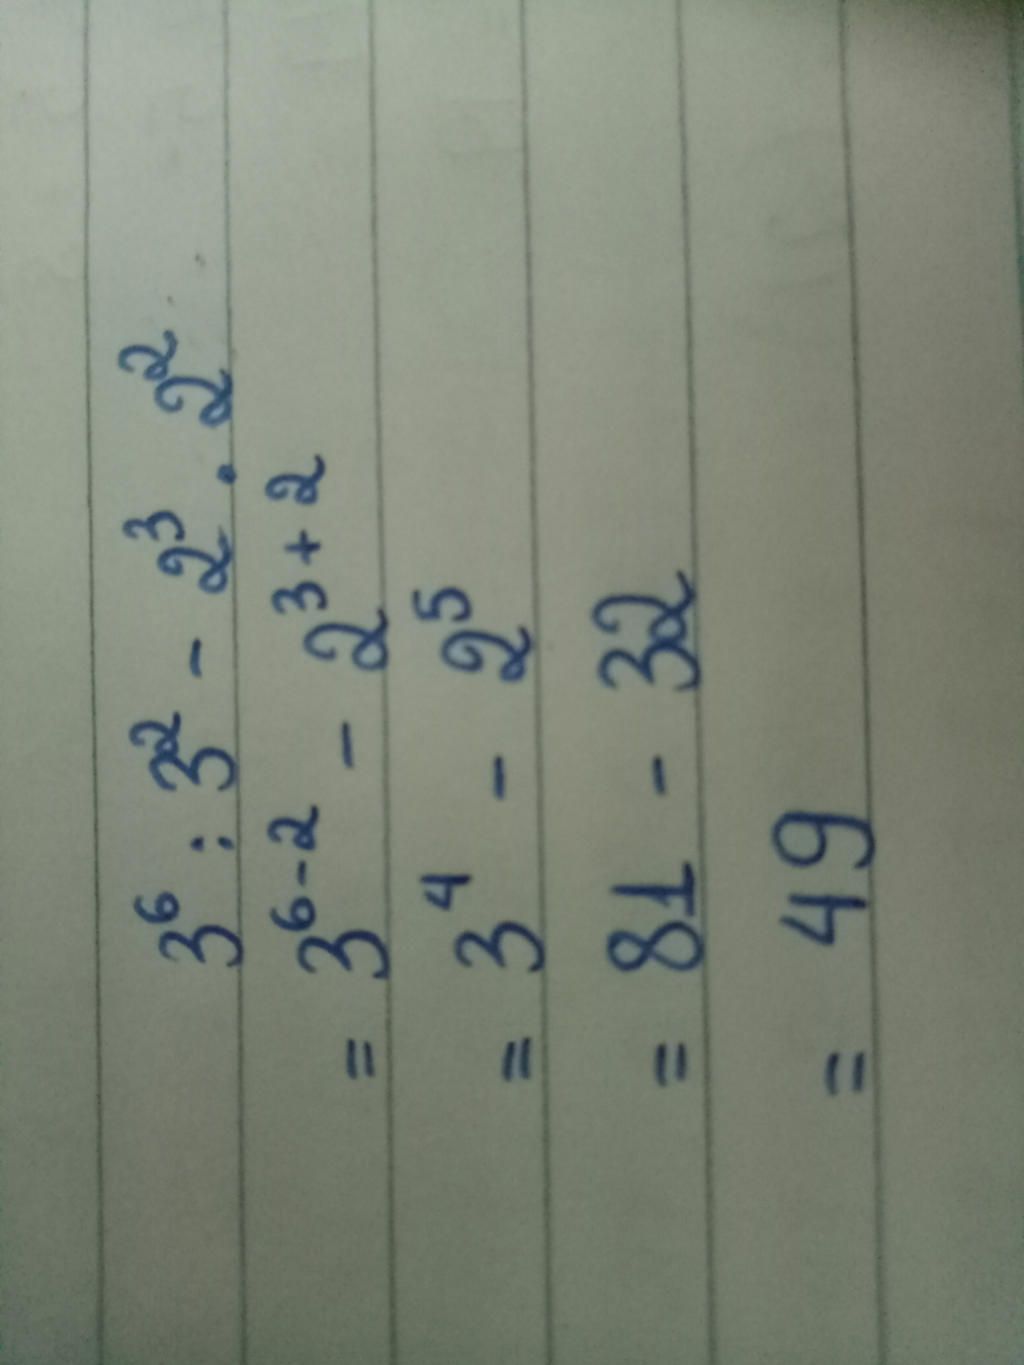 3⁶ : 3² - 2³ . 2²
= 3⁶⁻² - 2³⁺²
= 3⁴ - 2⁵
= 81 - 32
= 49